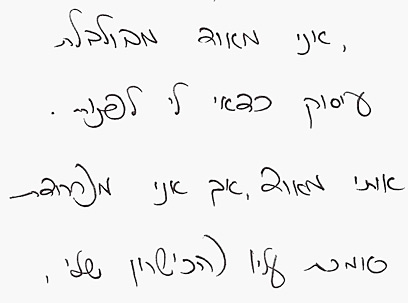 אני מאוד מבולבלת,
עיסוק כדאי לי לפנות.
אותי מאוד, אך אני מפחדת
סומכת עליו (הכישרון שלי,